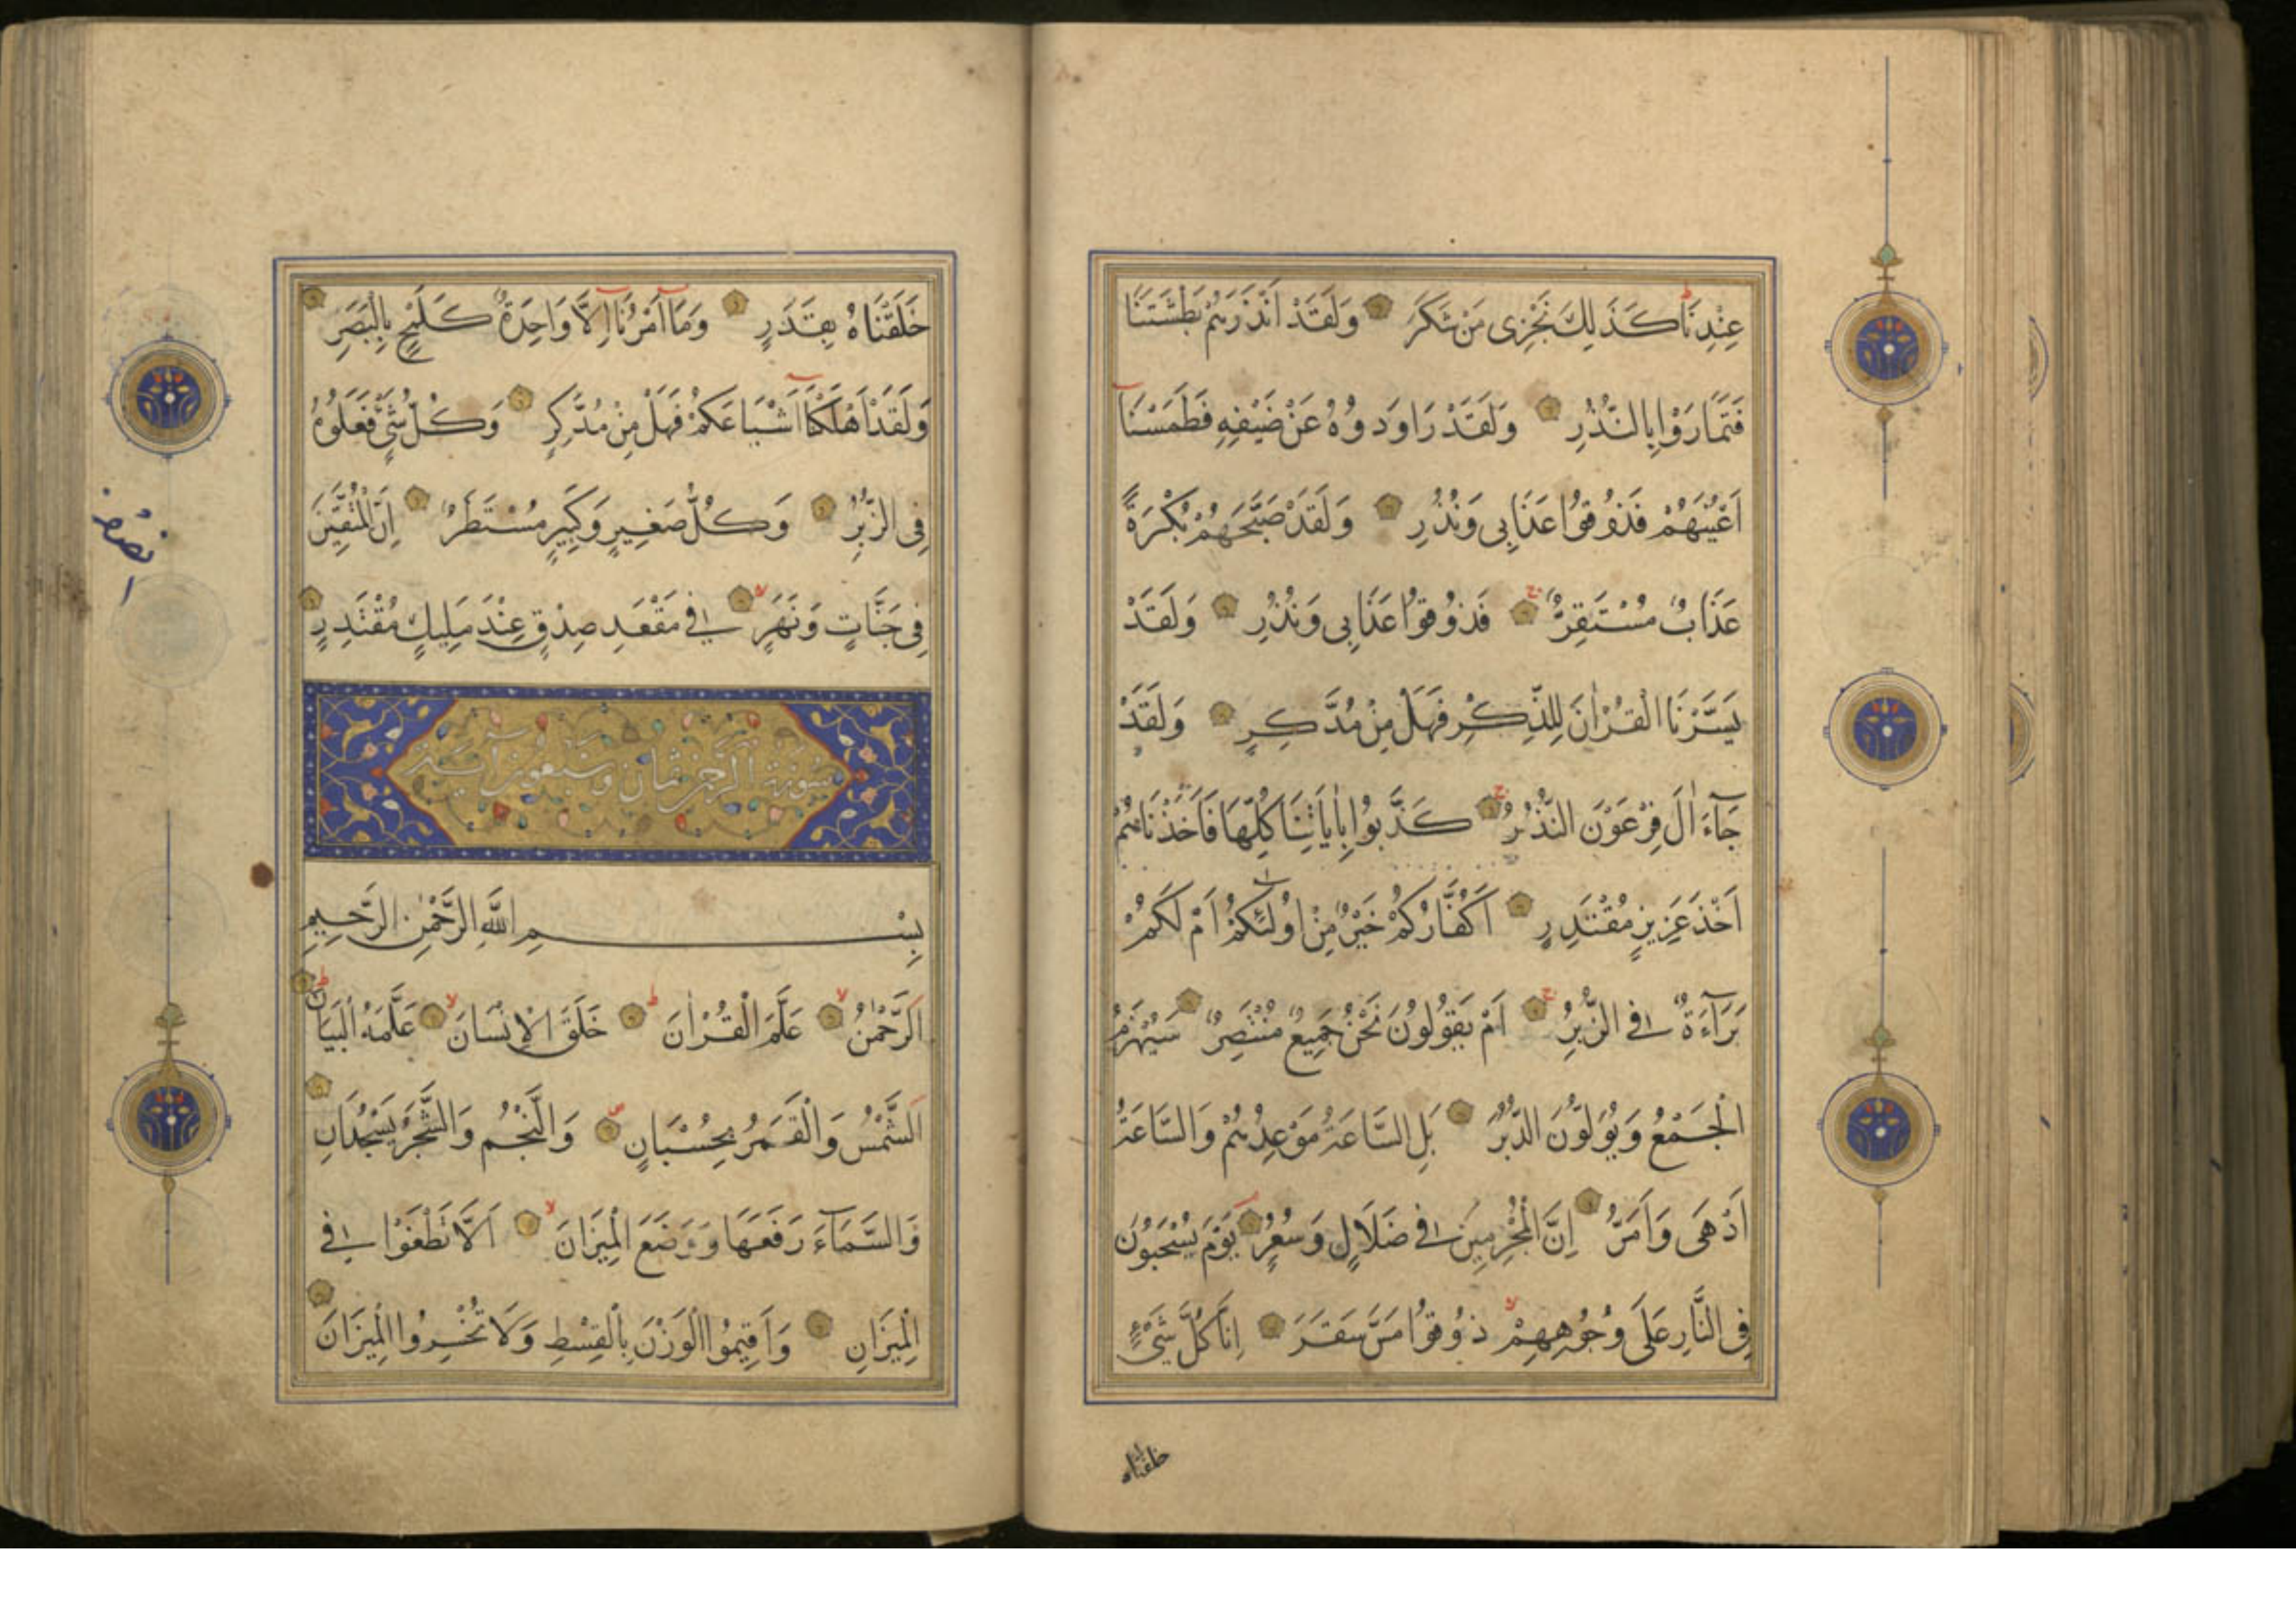 عِنْدِنَا كَذَلِكَ نَجْزِى مَنْ شَكَرَ وَلَقَدْ اَنْذَرَهُمْ بَطْشَتَنَا
فَتَمَارَوْا بِالنُّذُرِ وَلَقَدْ رَاوَدُوهُ عَنْ ضَيْفِهِ فَطَمَسْنَا
اَعْيُنَهُمْ فَذُوقُوا عَذَابِى وَنُذُرِ وَلَقَدْ صَبَّحَهُمْ بُكْرَةً
عَذَابٌ مُسْتَقِرٌّ فَذُوقُوا عَذَابِى وَنُذُرِ وَلَقَدْ
يَسَّرْنَا الْقُرْاٰنَ لِلذِّكْرِ فَهَلْ مِنْ مُدَّكِرٍ وَلَقَدْ
جَآءَ اٰلَ فِرْعَوْنَ النُّذُرُ كَذَّبُوا بِاٰيَاتِنَا كُلِّهَا فَاَخَذْنَاهُمْ
اَخْذَ عَزِيزٍ مُقْتَدِرٍ اَكُفَّارُكُمْ خَيْرٌ مِنْ اُولٰئِكُمْ اَمْ لَكُمْ
بَرَآءَةٌ فِى الزُّبُرِ اَمْ يَقُولُونَ نَحْنُ جَمِيعٌ مُنْتَصِرٌ سَيُهْزَمُ
الْجَمْعُ وَيُوَلُّونَ الدُّبُرَ بَلِ السَّاعَةُ مَوْعِدُهُمْ وَالسَّاعَةُ
اَدْهَى وَاَمَرُّ اِنَّ الْمُجْرِمِينَ فِى ضَلَالٍ وَسُعُرٍ يَوْمَ يُسْحَبُونَ
فِى النَّارِ عَلَى وُجُوهِهِمْ ذُوقُوا مَسَّ سَقَرَ اِنَّا كُلَّ شَىْءٍ
خلقناه
خَلَقْنَاهُ بِقَدَرٍ وَمَا اَمْرُنَا اِلَّا وَاحِدَةٌ كَلَمْحٍ بِالْبَصَرِ
وَلَقَدْ اَهْلَكْنَا اَشْيَاعَكُمْ فَهَلْ مِنْ مُدَّكِرٍ وَكُلُّ شَىْءٍ فَعَلُوهُ
فِى الزُّبُرِ وَكُلُّ صَغِيرٍ وَكَبِيرٍ مُسْتَطَرٌ اِنَّ الْمُتَّقِينَ
فِى جَنَّاتٍ وَنَهَرٍ فِى مَقْعَدِ صِدْقٍ عِنْدَ مَلِيكٍ مُقْتَدِرٍ
سورة الرحمن ثمان وسبعون اية
بِسْمِ اللَّهِ الرَّحْمٰنِ الرَّحِيمِ
اَلرَّحْمٰنُ عَلَّمَ الْقُرْاٰنَ خَلَقَ الْاِنْسَانَ عَلَّمَهُ الْبَيَانَ
اَلشَّمْسُ وَالْقَمَرُ بِحُسْبَانٍ وَالنَّجْمُ وَالشَّجَرُ يَسْجُدَانِ
وَالسَّمَآءَ رَفَعَهَا وَوَضَعَ الْمِيزَانَ اَلَّا تَطْغَوْا فِى
الْمِيزَانِ وَاَقِيمُوا الْوَزْنَ بِالْقِسْطِ وَلَا تُخْسِرُوا الْمِيزَانَ